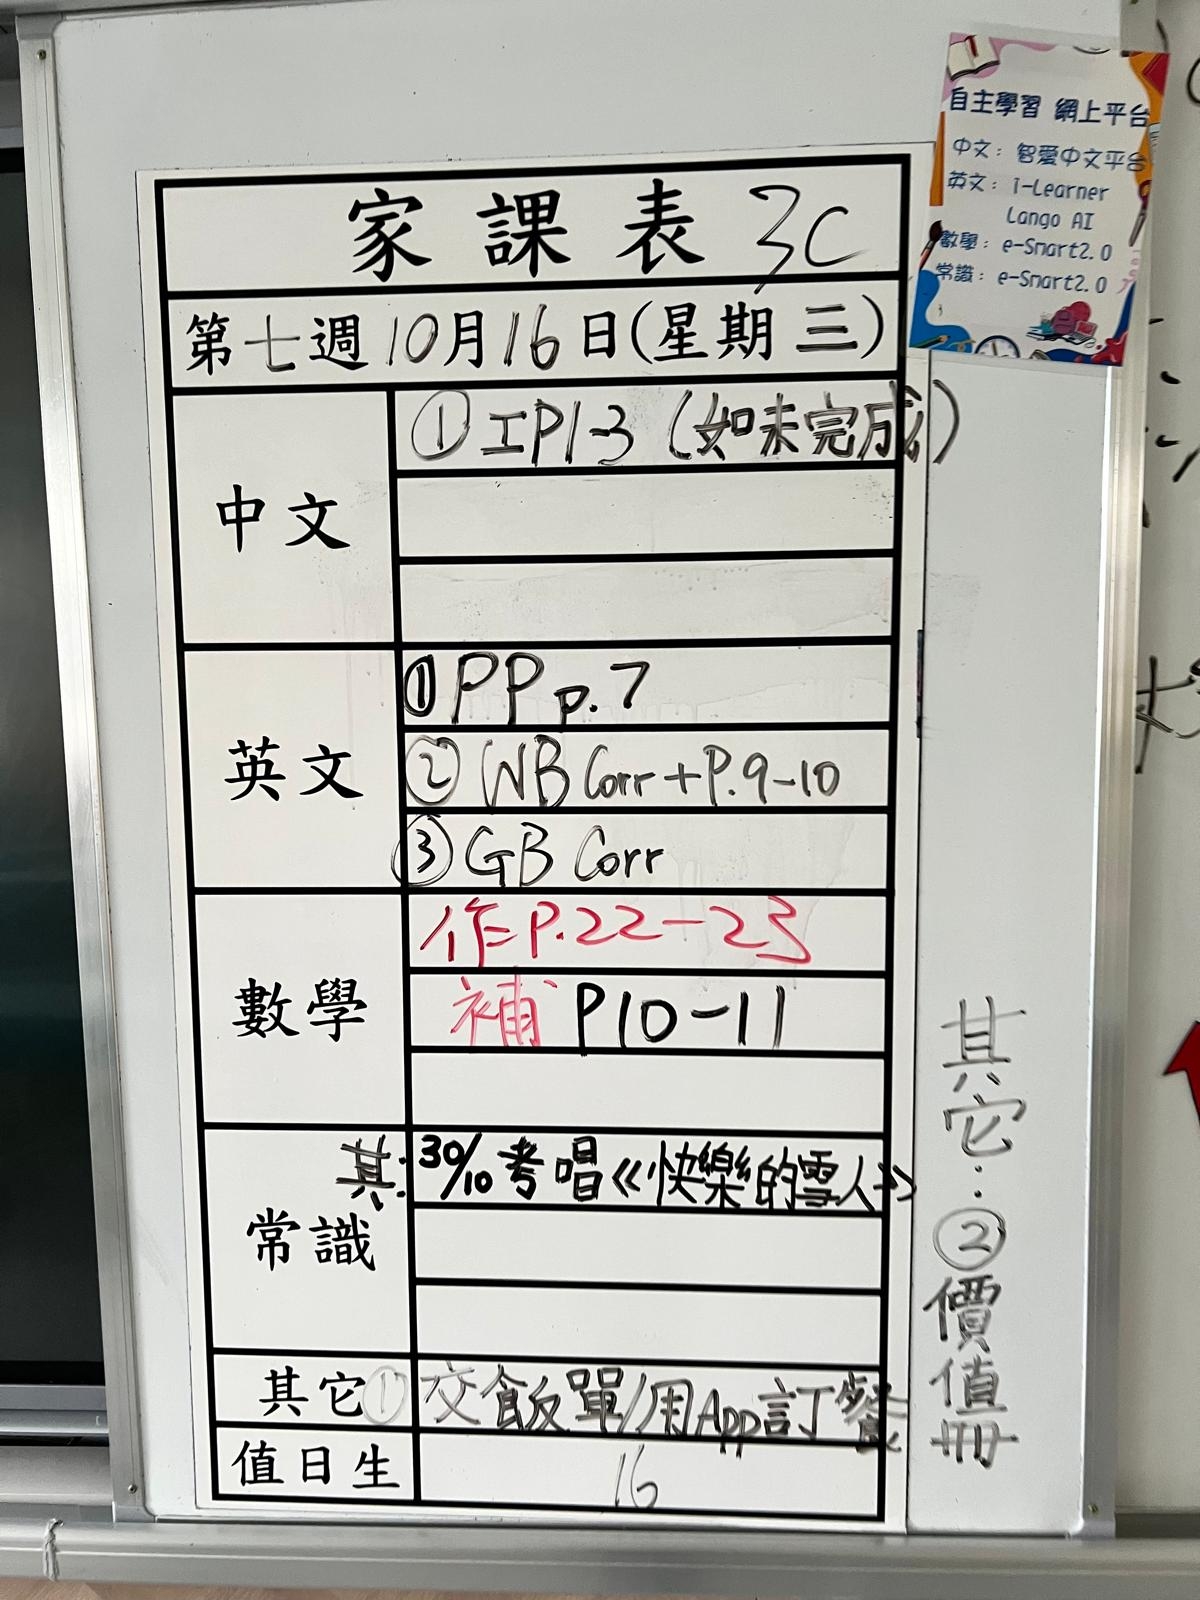 自主學習 網上平台
中文：智愛中文平台
英文：i-Learner
Lango AI
數學：e-Smart2.0
常識：e-Smart2.0
家課表 3C
第七週10月16日(星期三)
中文
①工P1-3（如未完成）
英文
①PP p.7
②WB Corr+P.9-10
③GB Corr
數學
作P.22-23
補P10-11
常識
其：30/10考唱《快樂的雪人》
其它①交飯單/用App訂餐
值日生 16
其它：②價值冊